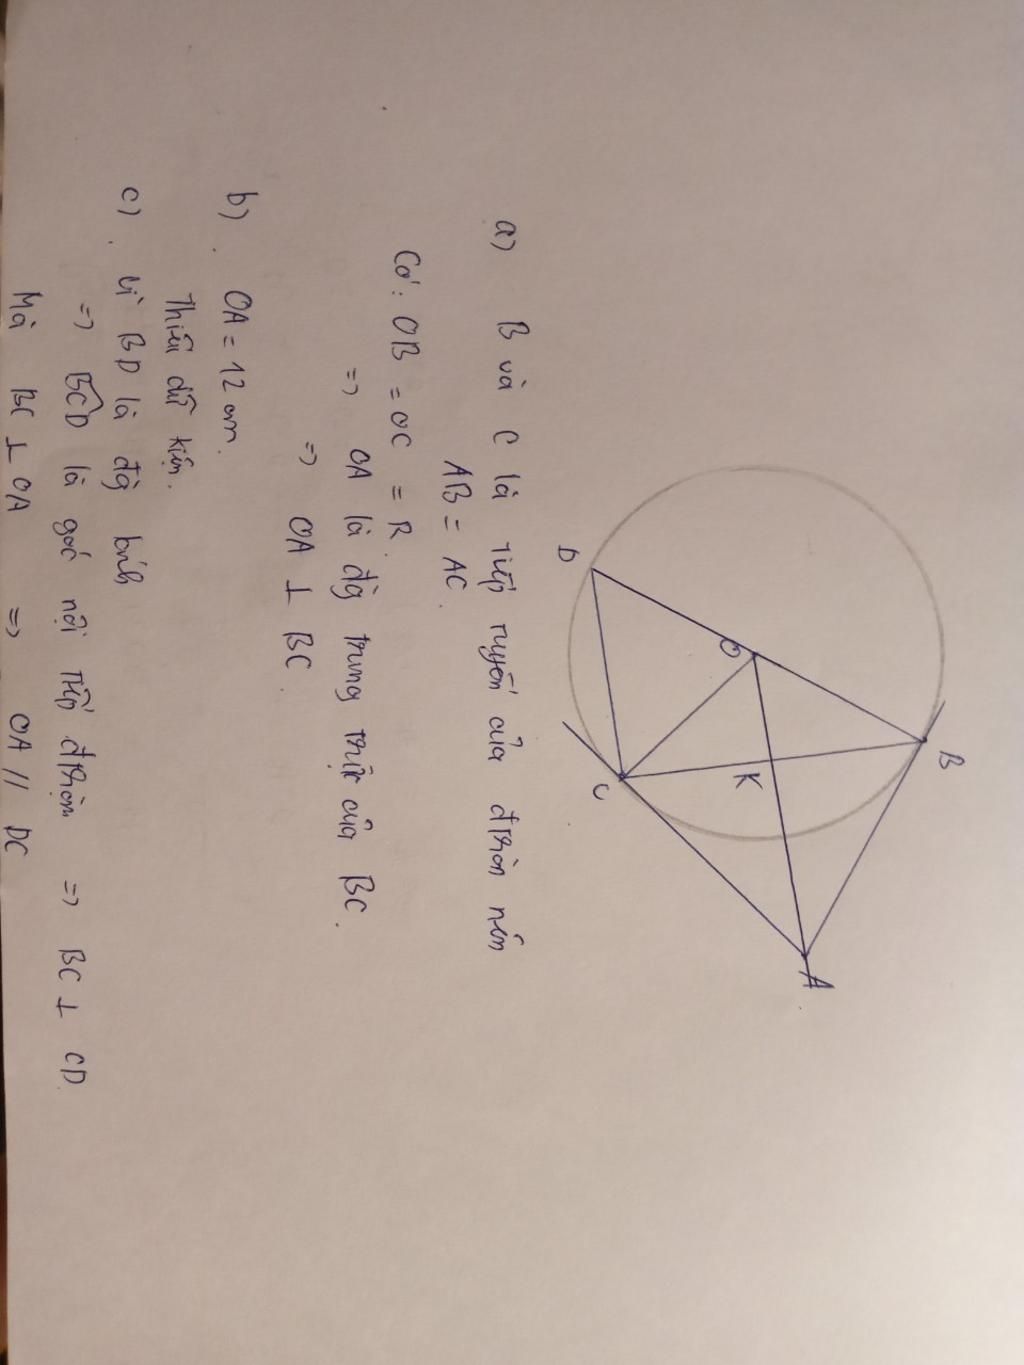 B
D
O
K
C
A
a) B và C là tiếp tuyến của đtròn nên
AB = AC.
Có: OB = OC = R.
=> OA là đg trung trực của BC.
=> OA ⊥ BC.
b). OA = 12 cm.
Thiếu dữ kiện.
c). Vì BD là đg kính
=> BCD là góc nội tiếp đtròn => BC ⊥ CD.
Mà BC ⊥ OA => OA // DC